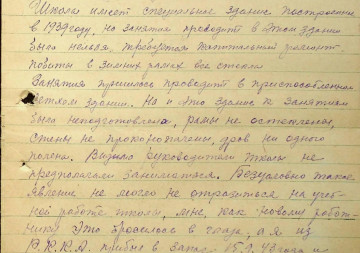 Школа имеет специальное здание построенное
в 1939 году, но занятия проводить в этом здании
было нельзя, требуется капитальный ремонт
побиты в зимних рамах все стекла
Занятия пришлось проводить в приспособленном
ветхом здании. Но и это здание к занятиям
было неподготовлено, рамы не остеклены,
стены не проконопачены, дров ни одного
полена. Видимо руководители школы не
предполагали заниматься. Безусловно такое
явление не могло не отразиться на учеб-
ной работе школы, мне, как новому работ-
нику это бросилось в глаза, а я из
Р.К.К.А. прибыл в запас